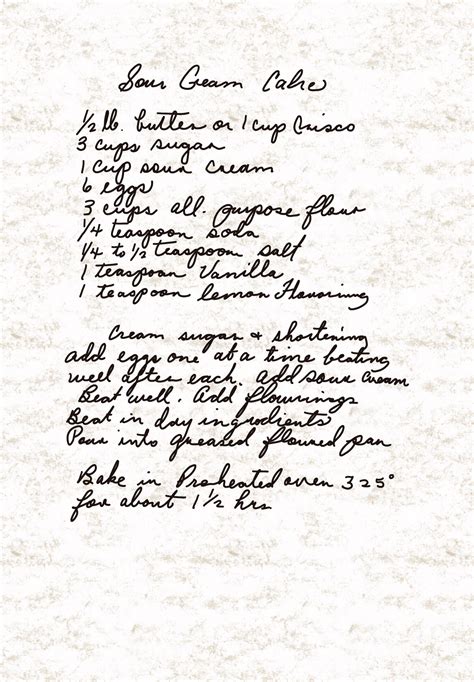 Sour Cream Cake
1/2 lb. butter or 1 cup Crisco
3 cups sugar
1 cup sour cream
6 eggs
3 cups all. purpose flour
1/4 teaspoon soda
1/4 to 1/2 teaspoon salt
1 teaspoon Vanilla
1 teaspoon lemon flavoring
Cream sugar & shortening
add eggs one at a time beating
well after each. Add sour cream
Beat well. Add flavorings
Beat in dry ingredients
Pour into greased floured pan
Bake in Preheated oven 325°
for about 1 1/2 hrs